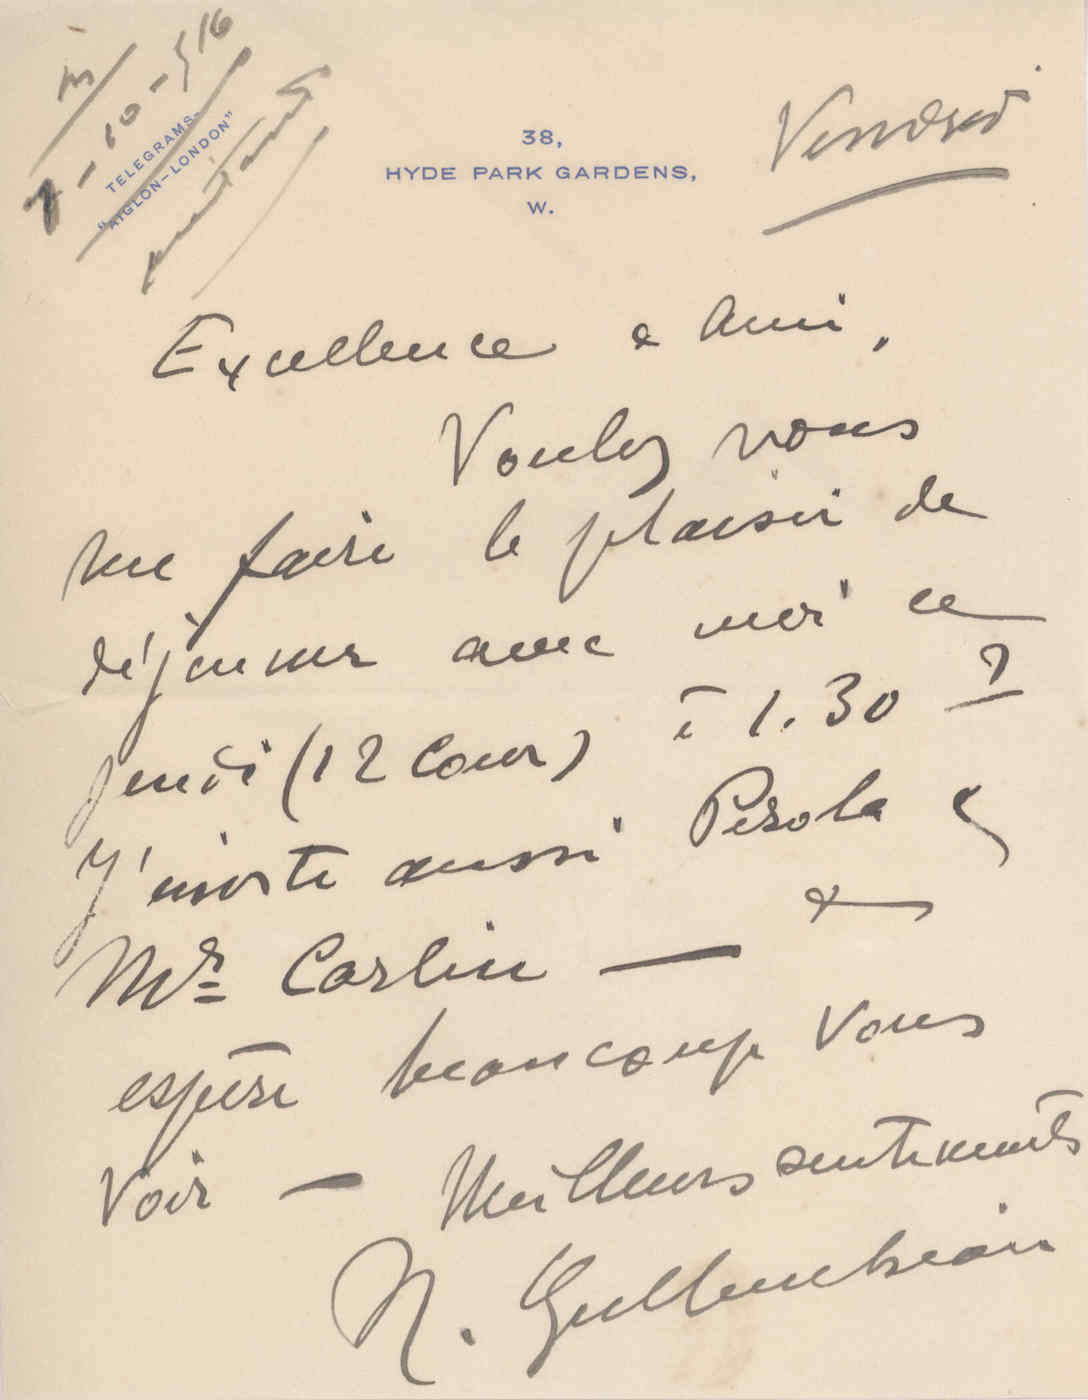 7-10-916
TELEGRAMS-
"AIGLON-LONDON"
38,
HYDE PARK GARDENS,
W.
Vendredi
Excellence & Ami,
Voulez vous
me faire le plaisir de
déjeuner avec moi ce
jeudi (12 Cour) à 1.30 ?
J'invite aussi Pérola &
Mr Carlin — &
espère beaucoup vous
voir — Meilleurs sentiments
N. Gulbenkian